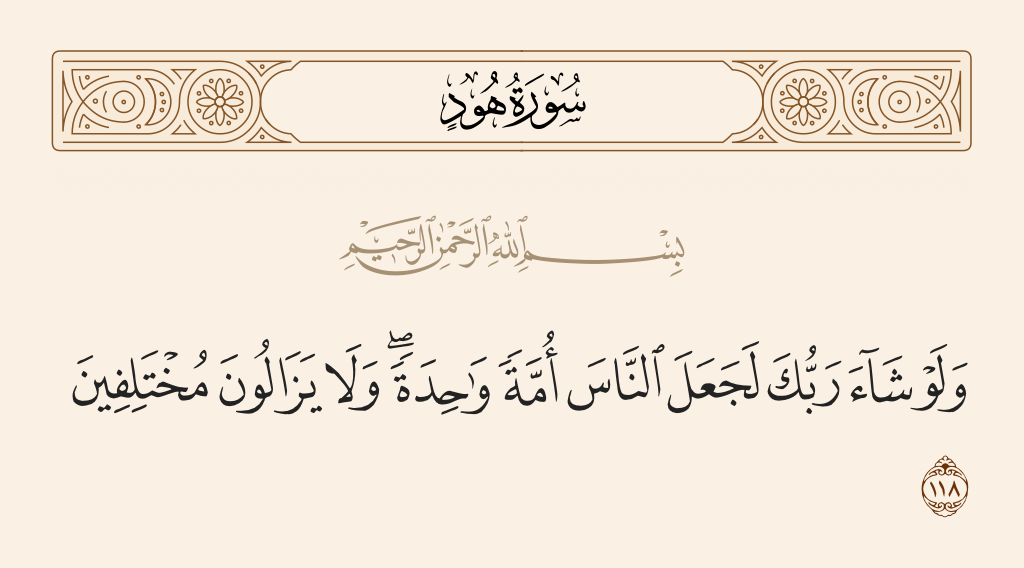 سُورَةُ هُودٍ
بِسْمِ ٱللَّهِ ٱلرَّحْمَٰنِ ٱلرَّحِيمِ
وَلَوْ شَآءَ رَبُّكَ لَجَعَلَ ٱلنَّاسَ أُمَّةً وَٰحِدَةً ۖ وَلَا يَزَالُونَ مُخْتَلِفِينَ
١١٨